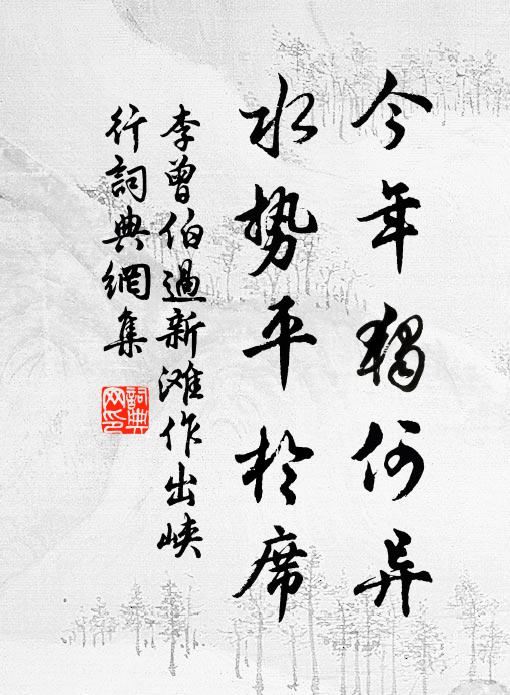 今年獨何异
水势平於席
李曾伯過新滩作出峡
行詞典網集
詞典
网印